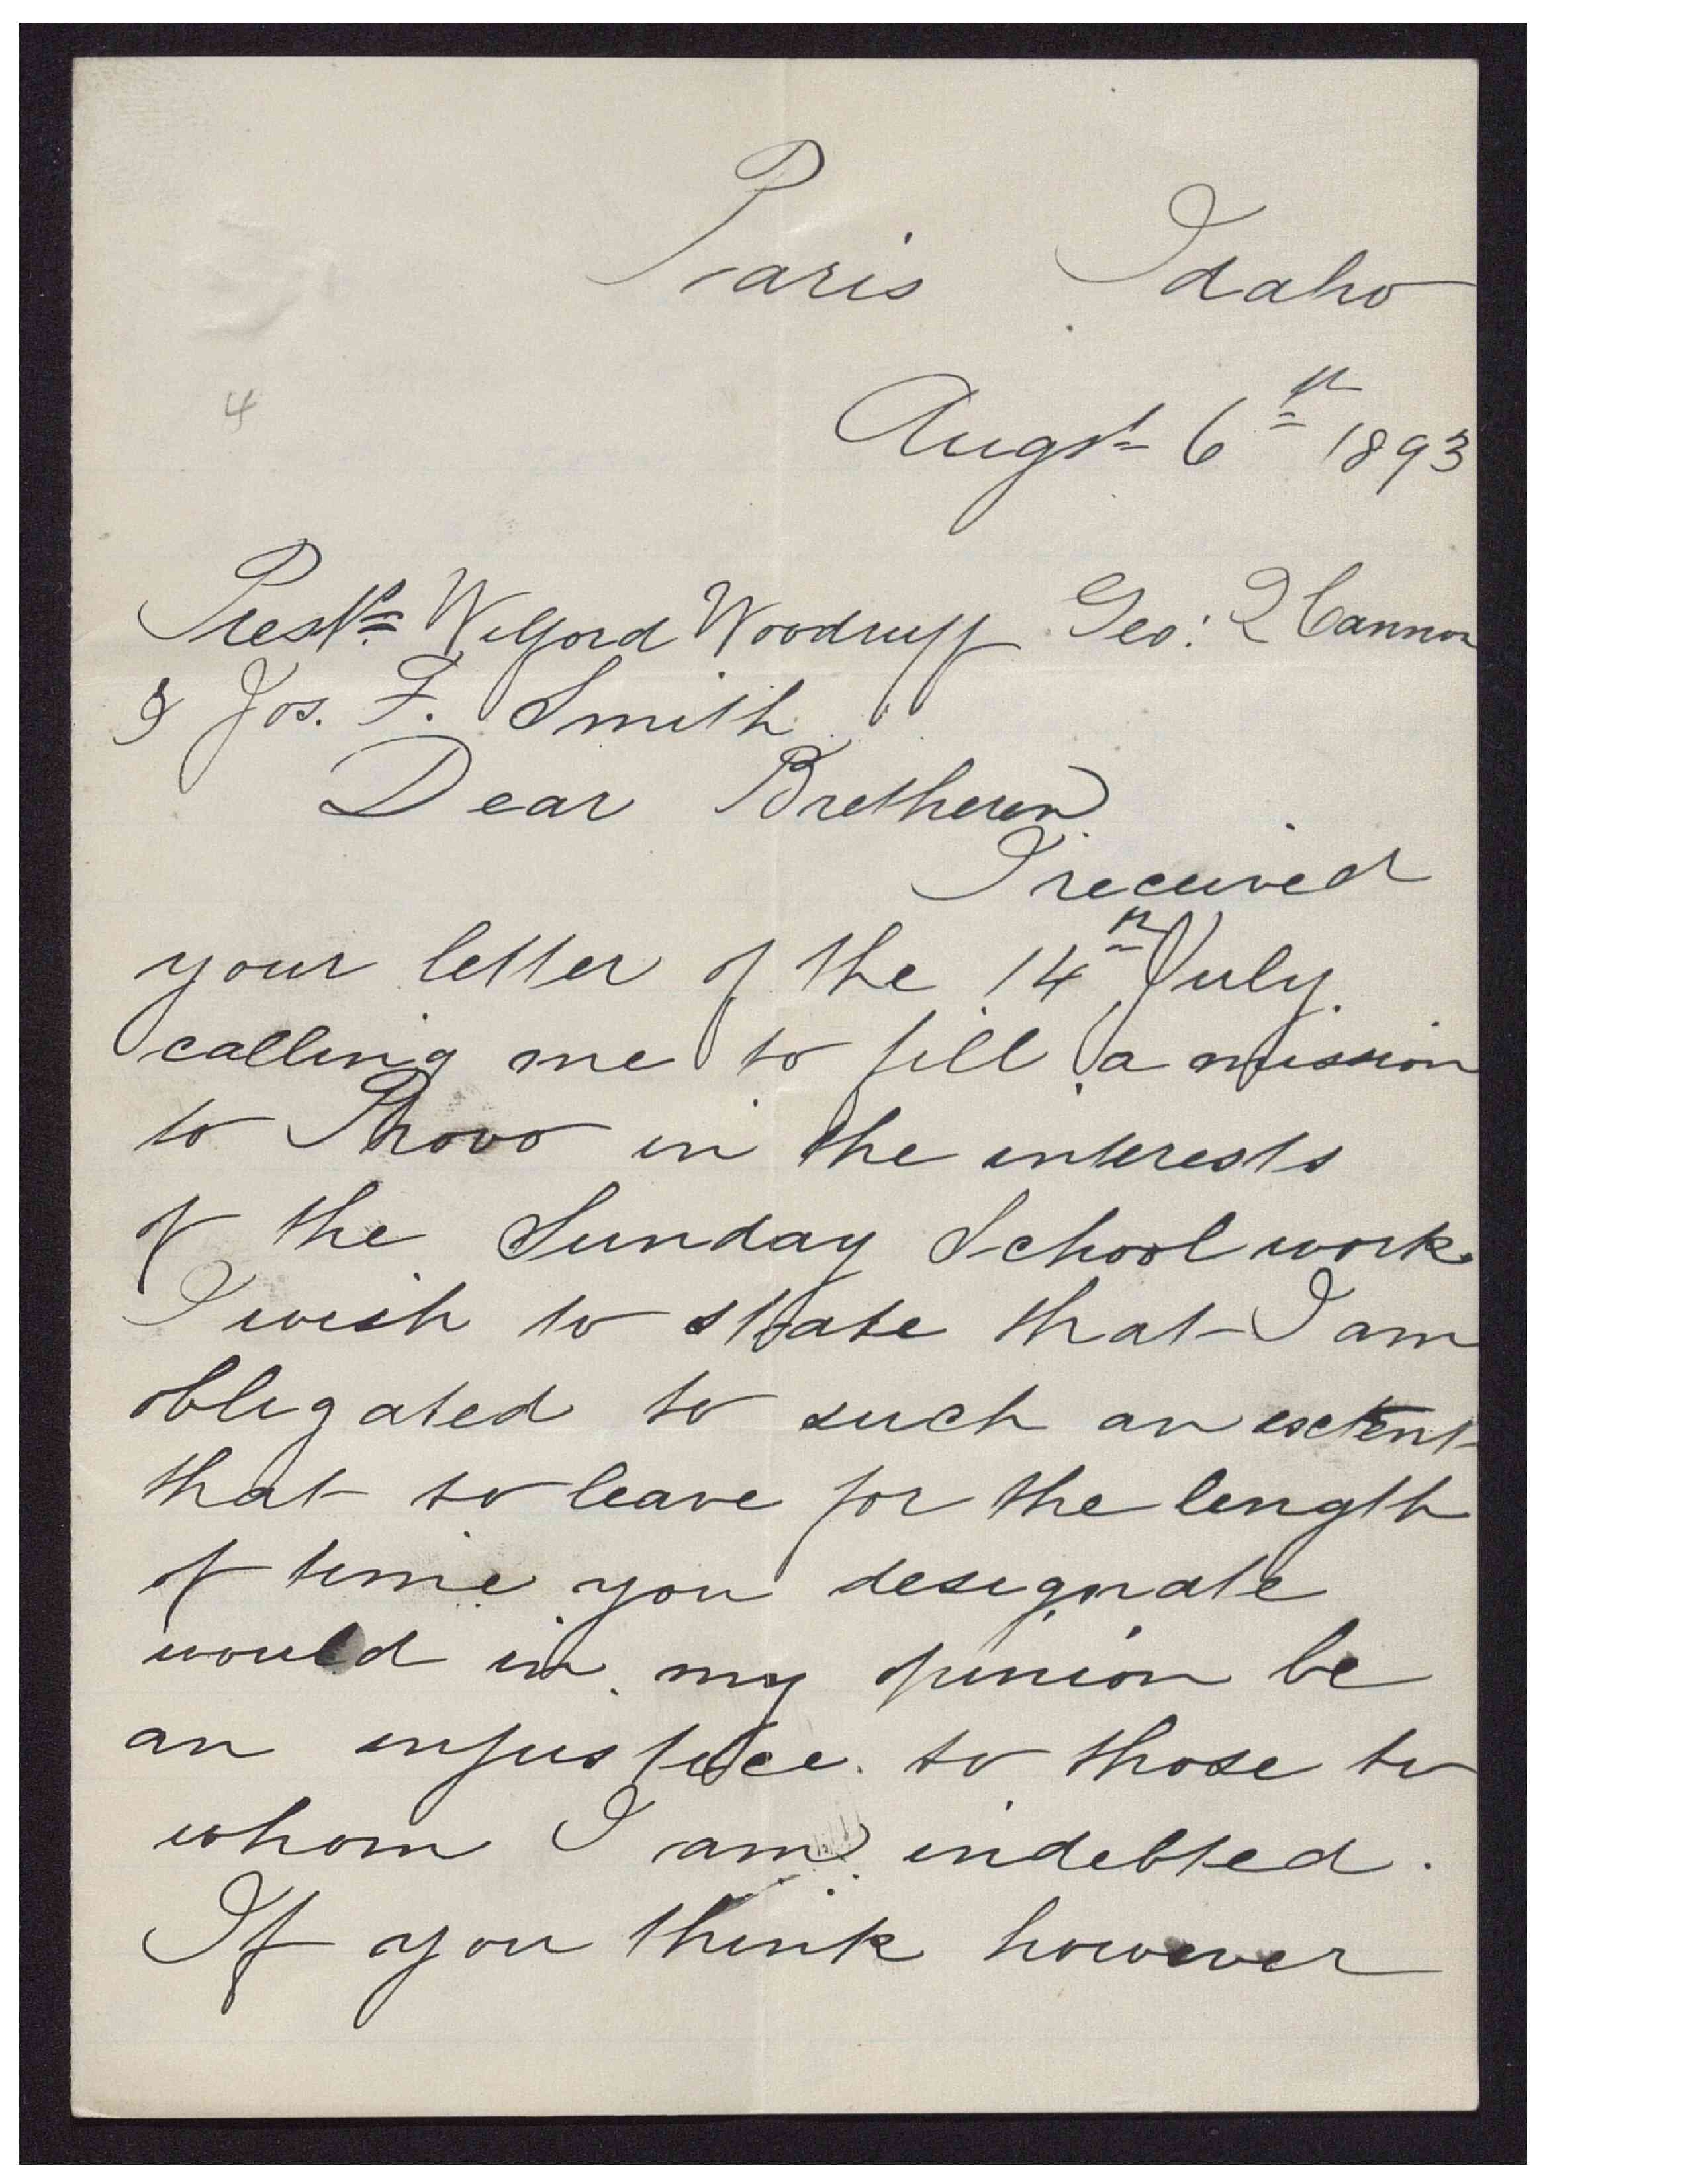 Paris Idaho
4
Augst 6th 1893
Presdts Wilford Woodruff Geo: Q Cannon
& Jos. F. Smith
Dear Bretheren
I received
your letter of the 14th July
calling me to fill a mission
to Provo in the interests
of the Sunday School work.
I wish to state that I am
obligated to such an extent
that to leave for the length
of time you designate
would in my opinion be
an injustice to those to
whom I am indebted.
If you think however